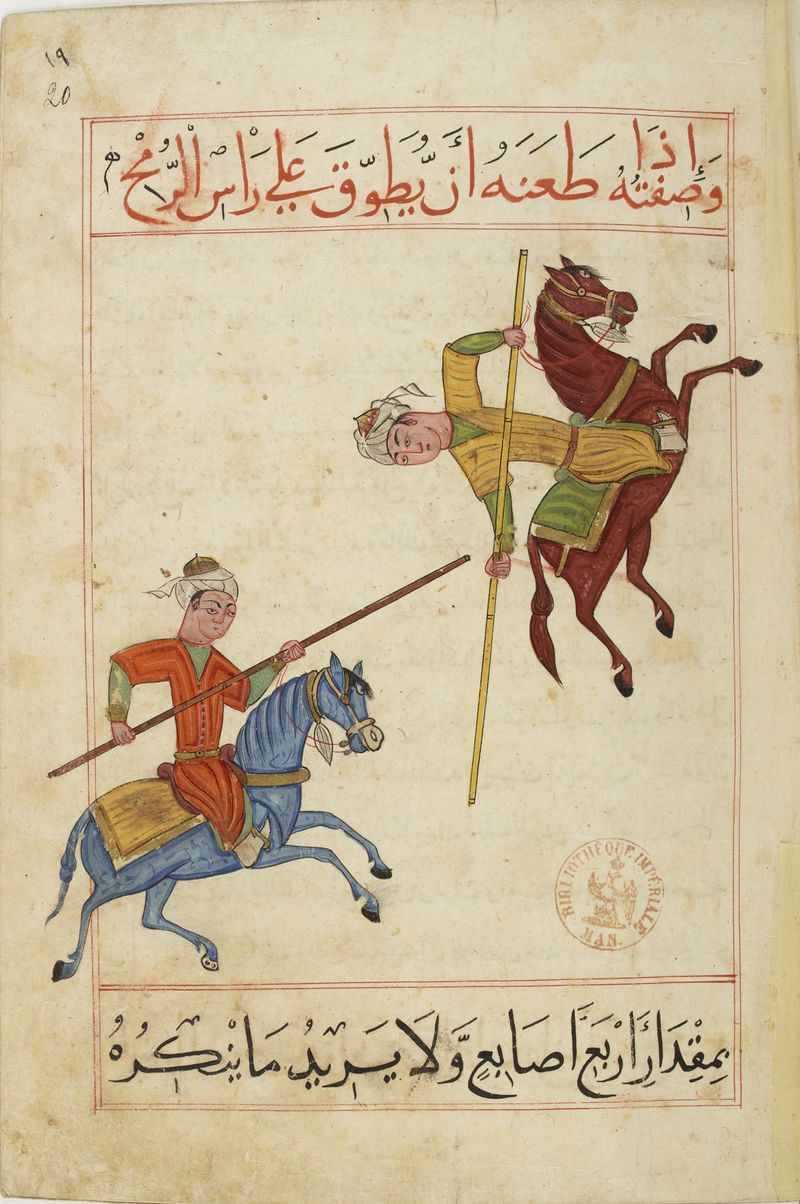 ١٩
20
وَصِفَتُهُ إِذَا طَعَنَهُ أَنْ يُّطَوِّقَ عَلَى رَاسِ الرُّمْحِ
BIBLIOTHÈQUE IMPÉRIALE MAN.
بِمِقْدَارِ أَرْبَعَ أَصَابِعٍ وَّلَا يَرِيدُ مَا يْنْكِرُهُ